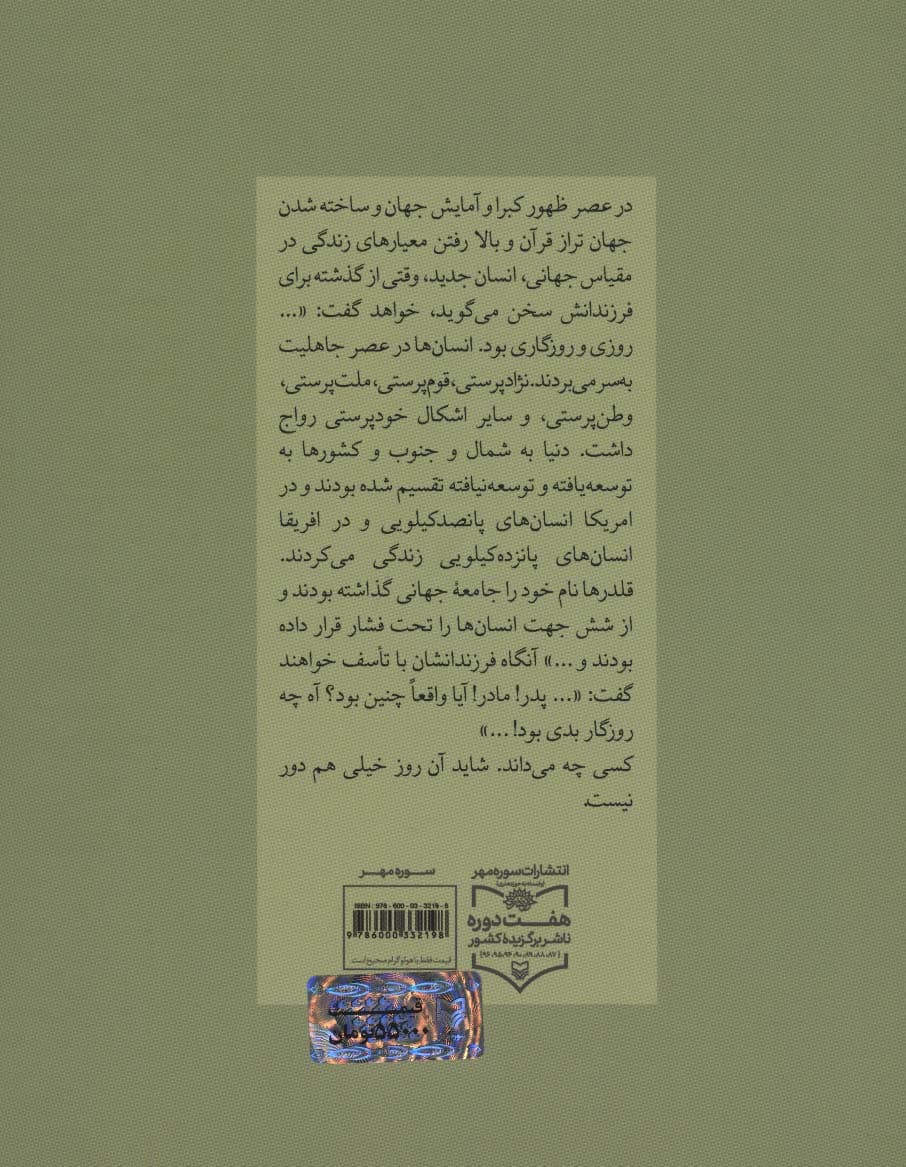 در عصر ظهور کبرا و آمایش جهان و ساخته شدن
جهان تراز قرآن و بالا رفتن معیارهای زندگی در
مقیاس جهانی، انسان جدید، وقتی از گذشته برای
فرزندانش سخن می‌گوید، خواهد گفت: «...
روزی و روزگاری بود. انسان‌ها در عصر جاهلیت
به‌سر می‌بردند. نژادپرستی، قوم‌پرستی، ملت‌پرستی،
وطن‌پرستی، و سایر اشکال خودپرستی رواج
داشت. دنیا به شمال و جنوب و کشورها به
توسعه‌یافته و توسعه‌نیافته تقسیم شده بودند و در
امریکا انسان‌های پانصدکیلویی و در افریقا
انسان‌های پانزده‌کیلویی زندگی می‌کردند.
قلدرها نام خود را جامعهٔ جهانی گذاشته بودند و
از شش جهت انسان‌ها را تحت فشار قرار داده
بودند و ...» آنگاه فرزندانشان با تأسف خواهند
گفت: «... پدر! مادر! آیا واقعاً چنین بود؟ آه چه
روزگار بدی بود! ...»
کسی چه می‌داند. شاید آن روز خیلی هم دور
نیست.
انتشارات سوره مهر
(وابسته به حوزه هنری)
هفت دوره
ناشر برگزیدهٔ کشور
[۸۷، ۸۸، ۸۹، ۹۰، ۹۴، ۹۵، ۹۶]
سوره مهر
ISBN : 978-600-03-3219-8
9 786000 332198
قیمت فقط با هولوگرام صحیح است.
قیمت
۵۵۰۰۰ تومان